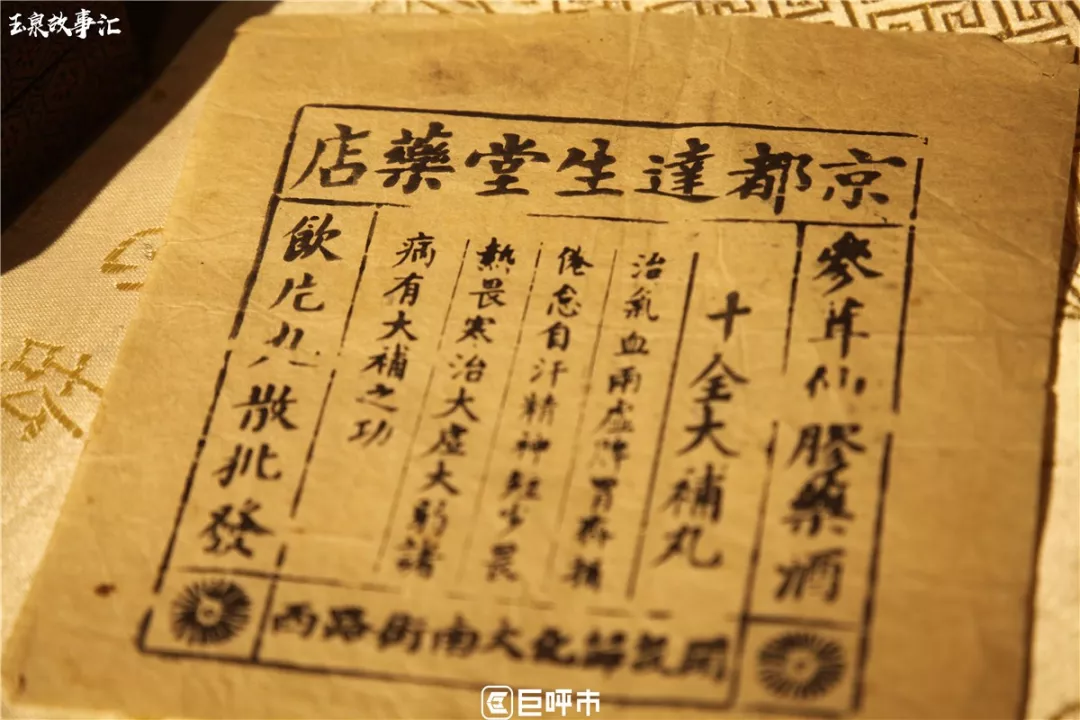 玉泉故事汇
京都達生堂藥店
參茸仙膠藥酒
十全大補丸
治氣血兩虛脾胃
倦怠自汗精神短少畏
熱畏寒治大虛大弱諸
病有大補之功
飲片丸散批發
開設歸化大南街路西
巨呼市